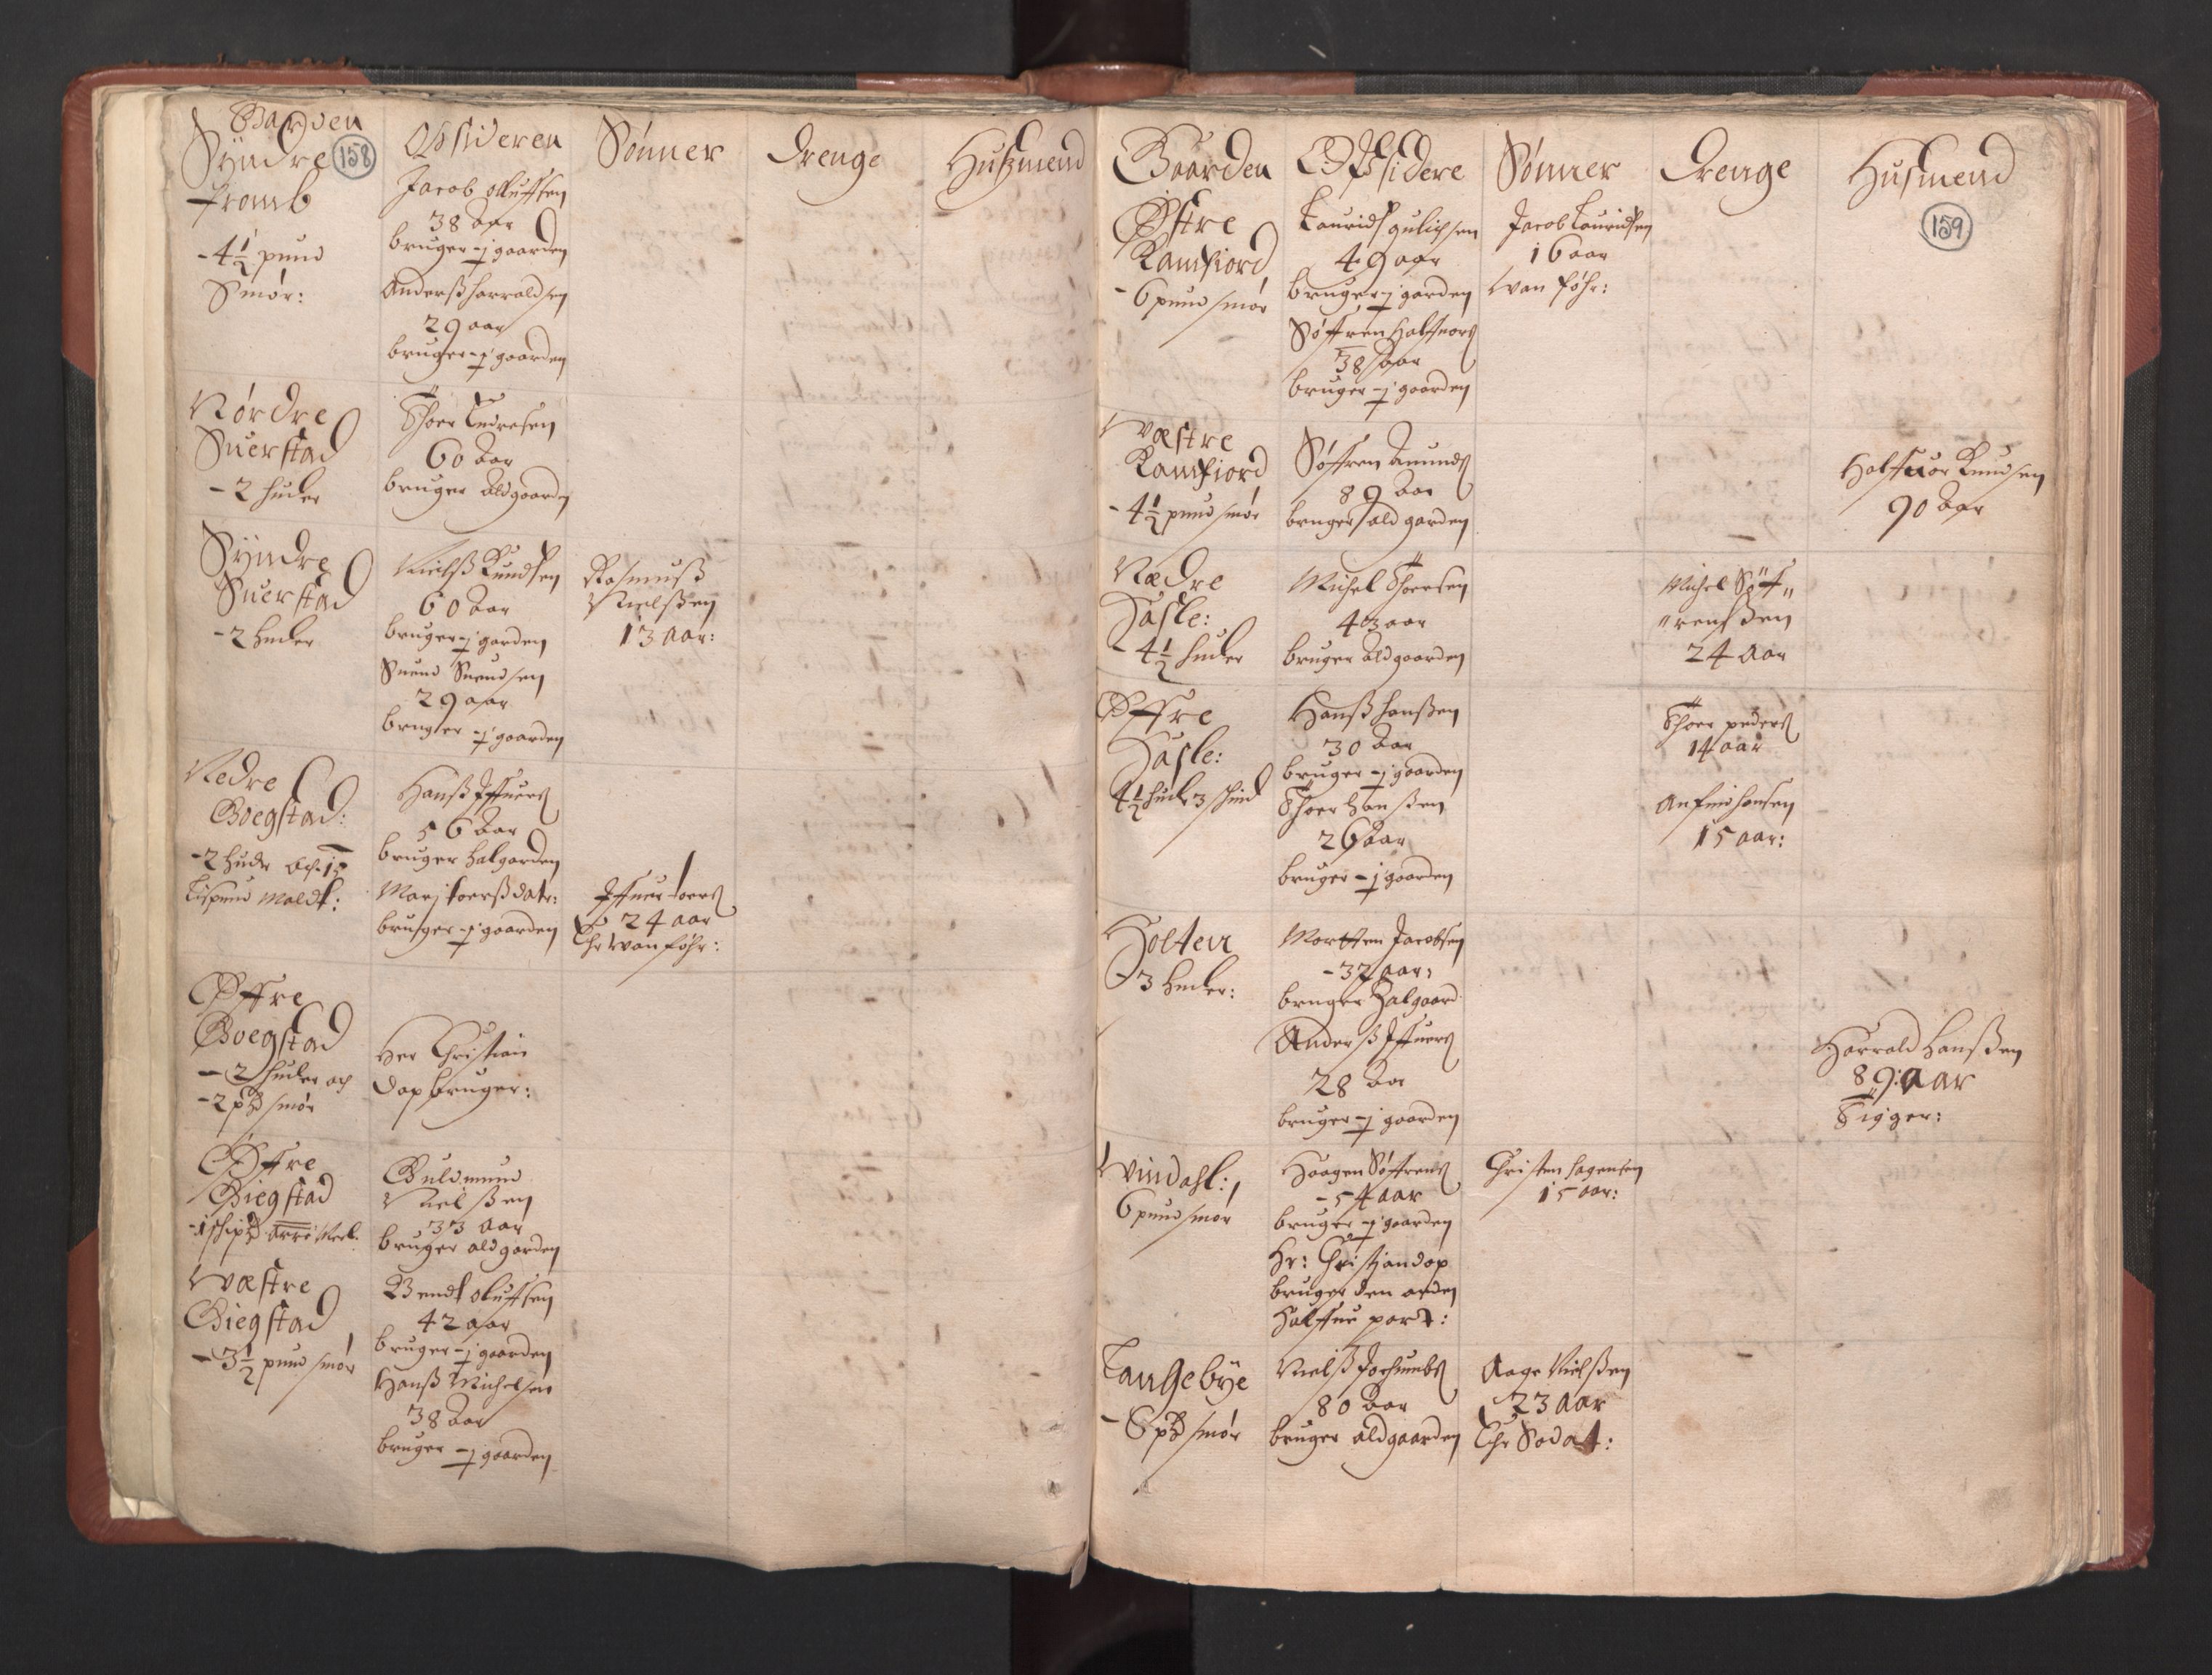 Gaarden
Opsideren
Sønner
Drenge
Hußmend
158
Syndre
Fromb
- 4½ pund
Smør:
Jacob olluffsen
38 Aar
bruger ½ gaarden
Anderß harraldsen
29 aar
bruger ½ gaarden
Nørdre
Suerstad
- 2 huder
Thoer Endresen
60 Aar
bruger Ald gaarden
Syndre
Suerstad
- 2 huder
Nielß Knudsen
60 Aar
bruger ½ garden
Suend Suendsen
29 aar
bruger ½ gaarden
Rasmuß
Nielßen
13 Aar:
Nedre
Boegstad:
- 2 hude och 1½
Lispund Maldt:
Hanß Iffuers
56 Aar
bruger halgarden
Marj toerß dater:
bruger ½ gaarden
Iffuer toers
24 aar
Ehr wanføhr:
Øffre
Boegstad
- 2 huder och
- 2 pd smør
Her Christian
Dop bruger:
Øffre
Biegstad
- 1 schipd
Guldmund
Nielßen
33 aar
bruger ald garden
Wæstre
Biegstad
- 3½ pund smør
Bendt oluffsen
42 aar
bruger ½ gaarden
Hanß Michelsen
38 Aar
bruger ½ gaarden
Gaarden
Opsidere
Sønner
Drenge
Husmend
159
Østre
Kamfiord
- 6 pund smør
Lauridß gulichsen
49 aar
bruger ½ garden
Søffren Halffuors
38 aar
bruger ½ gaarden
Jacob Lauridsen
16 aar
wanføhr:
Wæstre
Kamfiord
- 4½ pund smør
Søffren Amunds
89 Aar
bruger ald garden
Halffuor Knudsen
90 Aar
Nædre
Hasle:
- 4½ huder
Michel Thoersen
43 aar
bruger Ald gaarden
Michel Søf„
„rensßen
24 Aar
Øffre
Hasle:
4½ hude 3 schind
Hanß hanßen
30 Aar
bruger ½ gaarden
Thoer hanßen
26 Aar
bruger ½ gaarden
Thoer peders
14 aar
Anfind hansen
15 aar:
Holten
- 3 huder:
Mortten Jacobsen
- 32 aar:
bruger halgaard
Anderß Iffuers
28 Aar
bruger ½ gaarden
Harrald hanßen
89: aar
Tigger:
Windahl:
6 pund smør
Haagen Søffrens
- 54 aar
bruger ½ gaarden
Hr: Christian dop
bruger den anden
halffue part:
Christen hagensen
15 aar:
Langebye
- 6 pd smør
Nielß Jochumbs
80 Aar
bruger ald gaarden
Aage Nielßen
23 aar
Ehr Sodat: